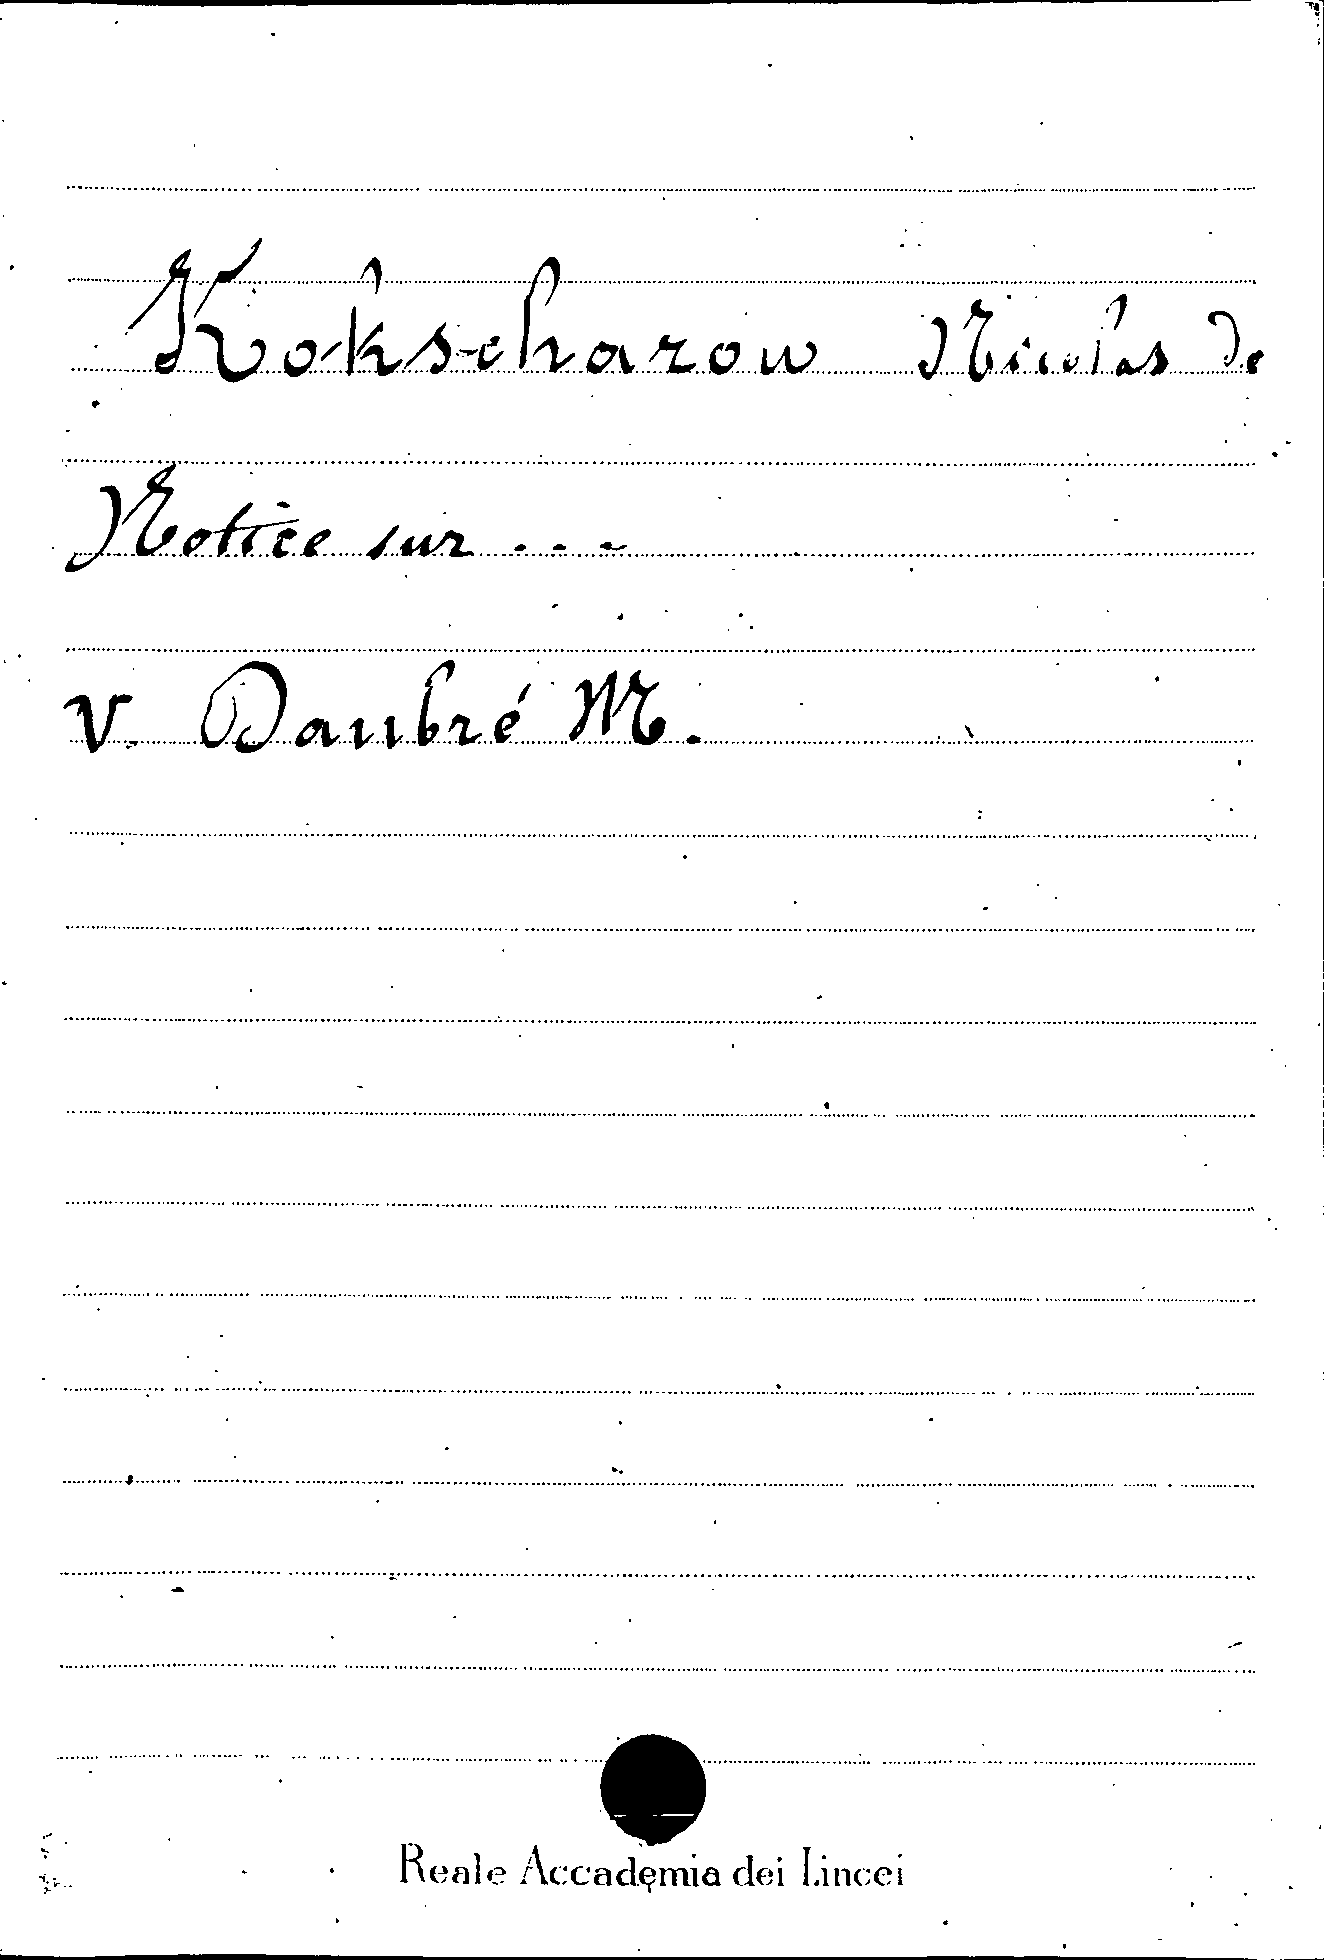 Kokscharow Nicolas de
Notice sur ...
v. Daubré M.
Reale Accademia dei Lincei